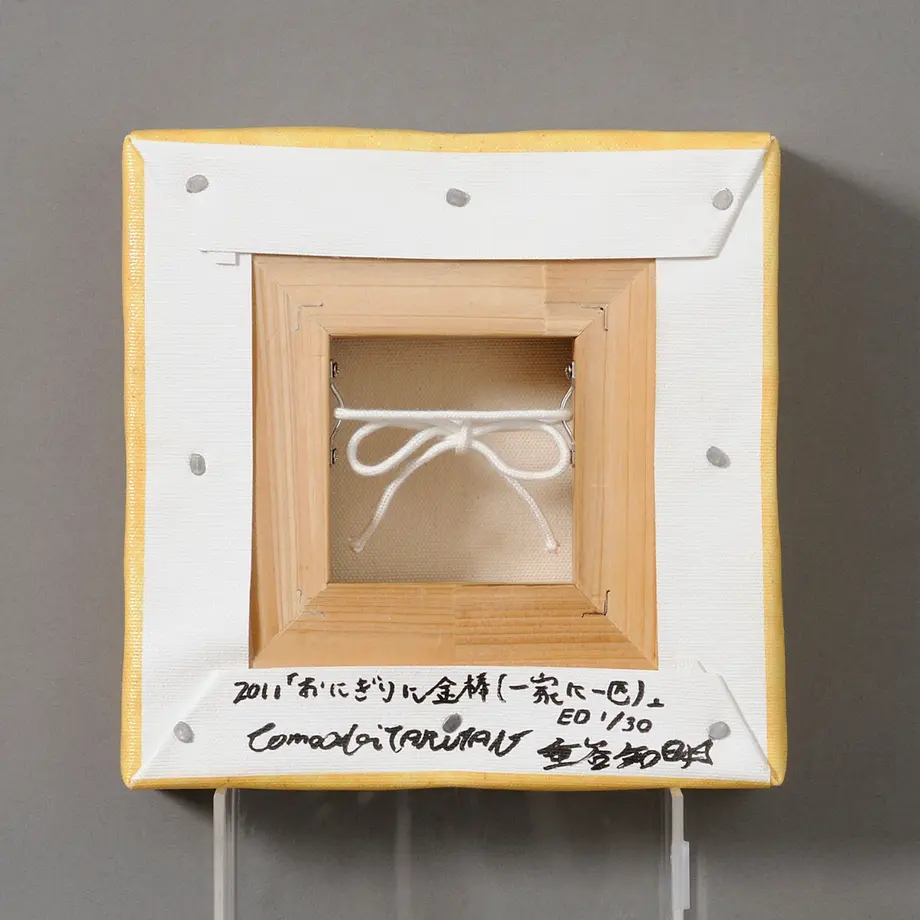 2011「おにぎりに金棒(一家に一匹)」
ED 1/30
Tomoaki TARUTANI 垂谷知明